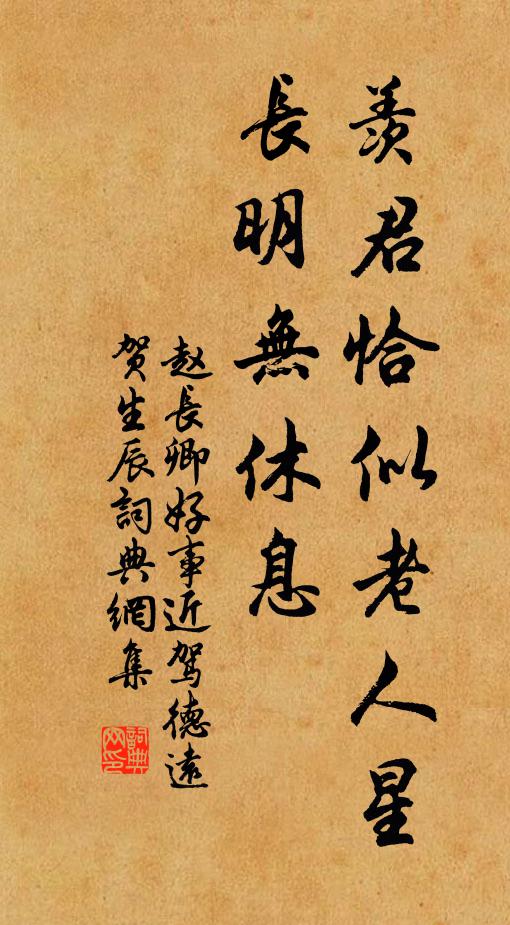 羨君恰似老人星
長明無休息
赵長卿好事近驾德遠
贺生辰詞典網集
詞典网印